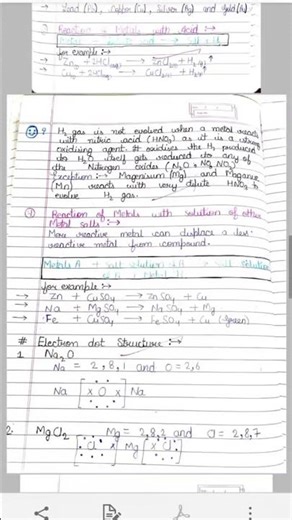 → Lead (Pb), Copper (Cu), Silver (Ag) and Gold (Au)
Reaction of Metals with Acid :→
for example :→
→ Zn + 2HCl(aq) → ZnCl2 + H2↑
H2 gas is not evolved when a metal reacts
with nitric acid (HNO3) as it is a strong
oxidising agent. It oxidises the H2 produced
to H2O itself gets reduced to any of
the Nitrogen oxides (N2O, NO, NO2)
Exception :→ Magnesium (Mg) and Manganese
(Mn) reacts with very dilute HNO3 to
evolve H2 gas.
Reaction of Metals with solution of other
Metal salts :→
More reactive metal can displace a less
reactive metal from compound.
Metals A + Salt solution → Salt solution
for example :→
→ Zn + CuSO4 → ZnSO4 + Cu
→ Na + MgSO4 → NaSO4 + Mg
→ Fe + CuSO4 → FeSO4 + Cu (green)
# Electron dot Structure :→
1 Na2O
Na = 2,8,1 and O=2,6
Na [ x O x ] Na
2. MgCl2 Mg = 2,8,2 and Cl = 2,8,7
[ Cl x ] Mg [ x Cl ]